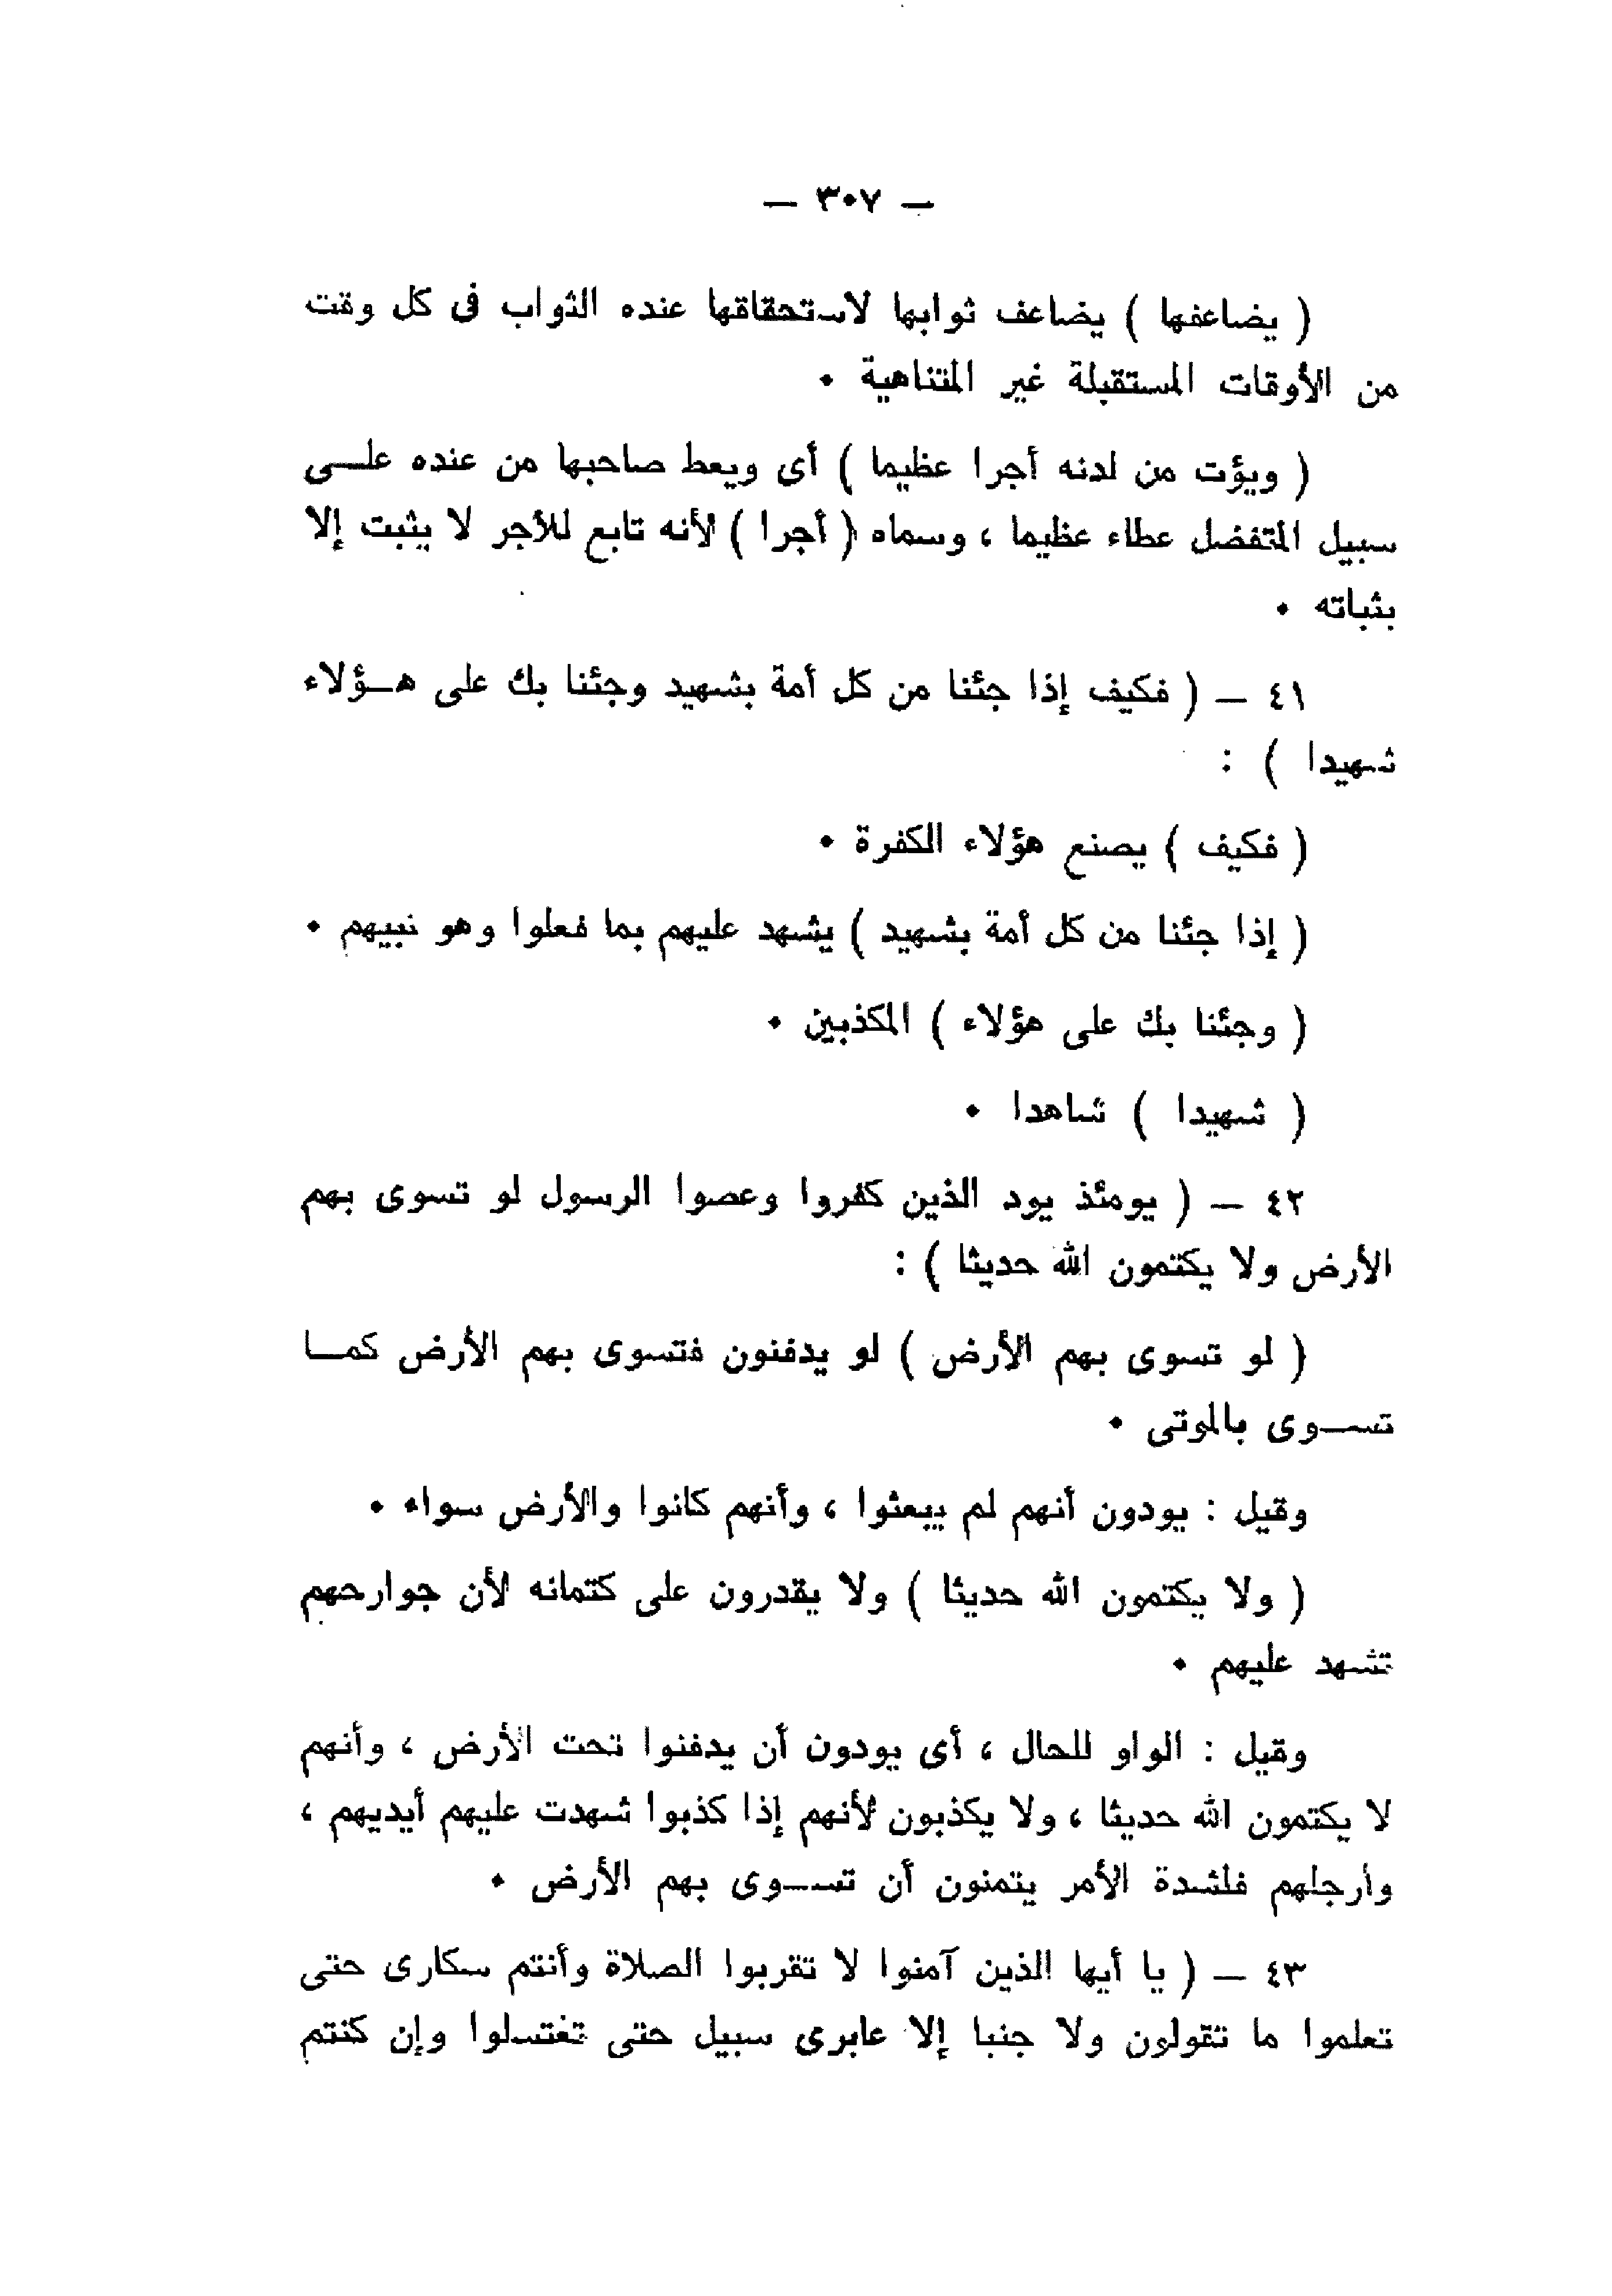 — ٣٠٧ —
( يضاعفها ) يضاعف ثوابها لاستحقاقها عنده الثواب فى كل وقت
من الأوقات المستقبلة غير المتناهية .
( ويؤت من لدنه أجرا عظيما ) أى ويعط صاحبها من عنده علــى
سبيل المتفضل عطاء عظيما ، وسماه ( أجرا ) لأنه تابع للأجر لا يثبت إلا
بثباته .
٤١ — ( فكيف إذا جئنا من كل أمة بشهيد وجئنا بك على هــؤلاء
شهيدا ) :
( فكيف ) يصنع هؤلاء الكفرة .
( إذا جئنا من كل أمة بشهيد ) يشهد عليهم بما فعلوا وهو نبيهم .
( وجئنا بك على هؤلاء ) المكذبين .
( شهيدا ) شاهدا .
٤٢ — ( يومئذ يود الذين كفروا وعصوا الرسول لو تسوى بهم
الأرض ولا يكتمون الله حديثا ) :
( لو تسوى بهم الأرض ) لو يدفنون فتسوى بهم الأرض كمــا
تســوى بالموتى .
وقيل : يودون أنهم لم يبعثوا ، وأنهم كانوا والأرض سواء .
( ولا يكتمون الله حديثا ) ولا يقدرون على كتمانه لأن جوارحهم
تشهد عليهم .
وقيل : الواو للحال ، أى يودون أن يدفنوا تحت الأرض ، وأنهم
لا يكتمون الله حديثا ، ولا يكذبون لأنهم إذا كذبوا شهدت عليهم أيديهم ،
وأرجلهم فلشدة الأمر يتمنون أن تســوى بهم الأرض .
٤٣ — ( يا أيها الذين آمنوا لا تقربوا الصلاة وأنتم سكارى حتى
تعلموا ما تقولون ولا جنبا إلا عابرى سبيل حتى تغتسلوا وإن كنتم